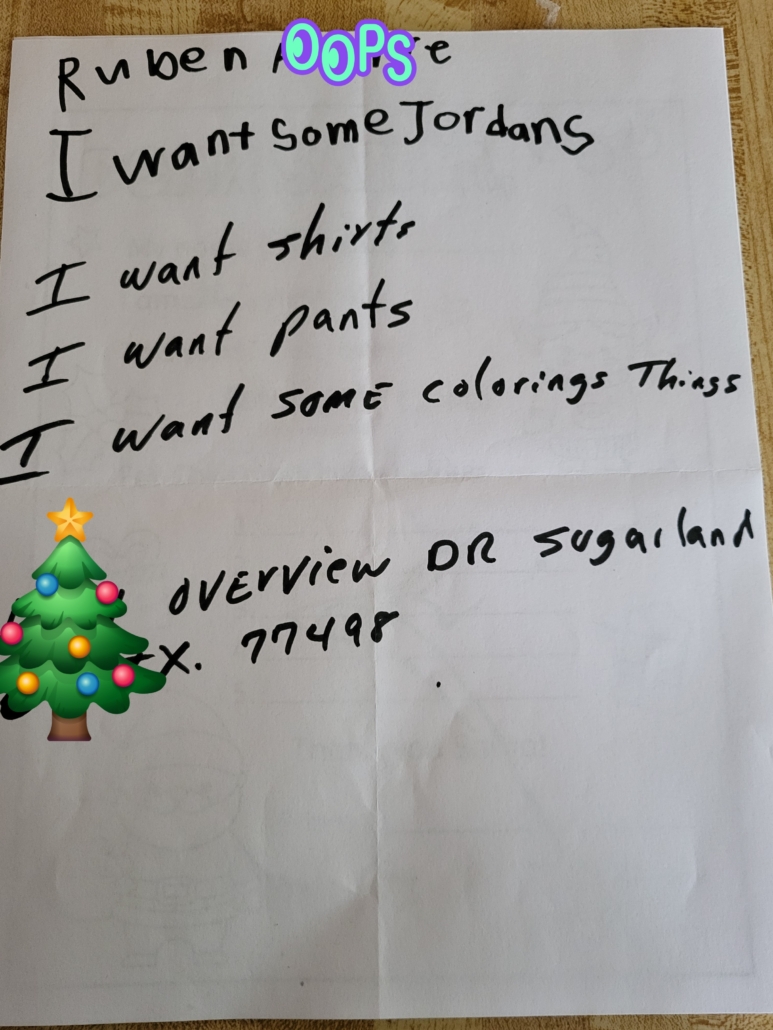 Ruben OOPS
I want some Jordans
I want shirts
I want pants
I want SOME colorings Things
OVErviEw DR sugarland
tx. 77498